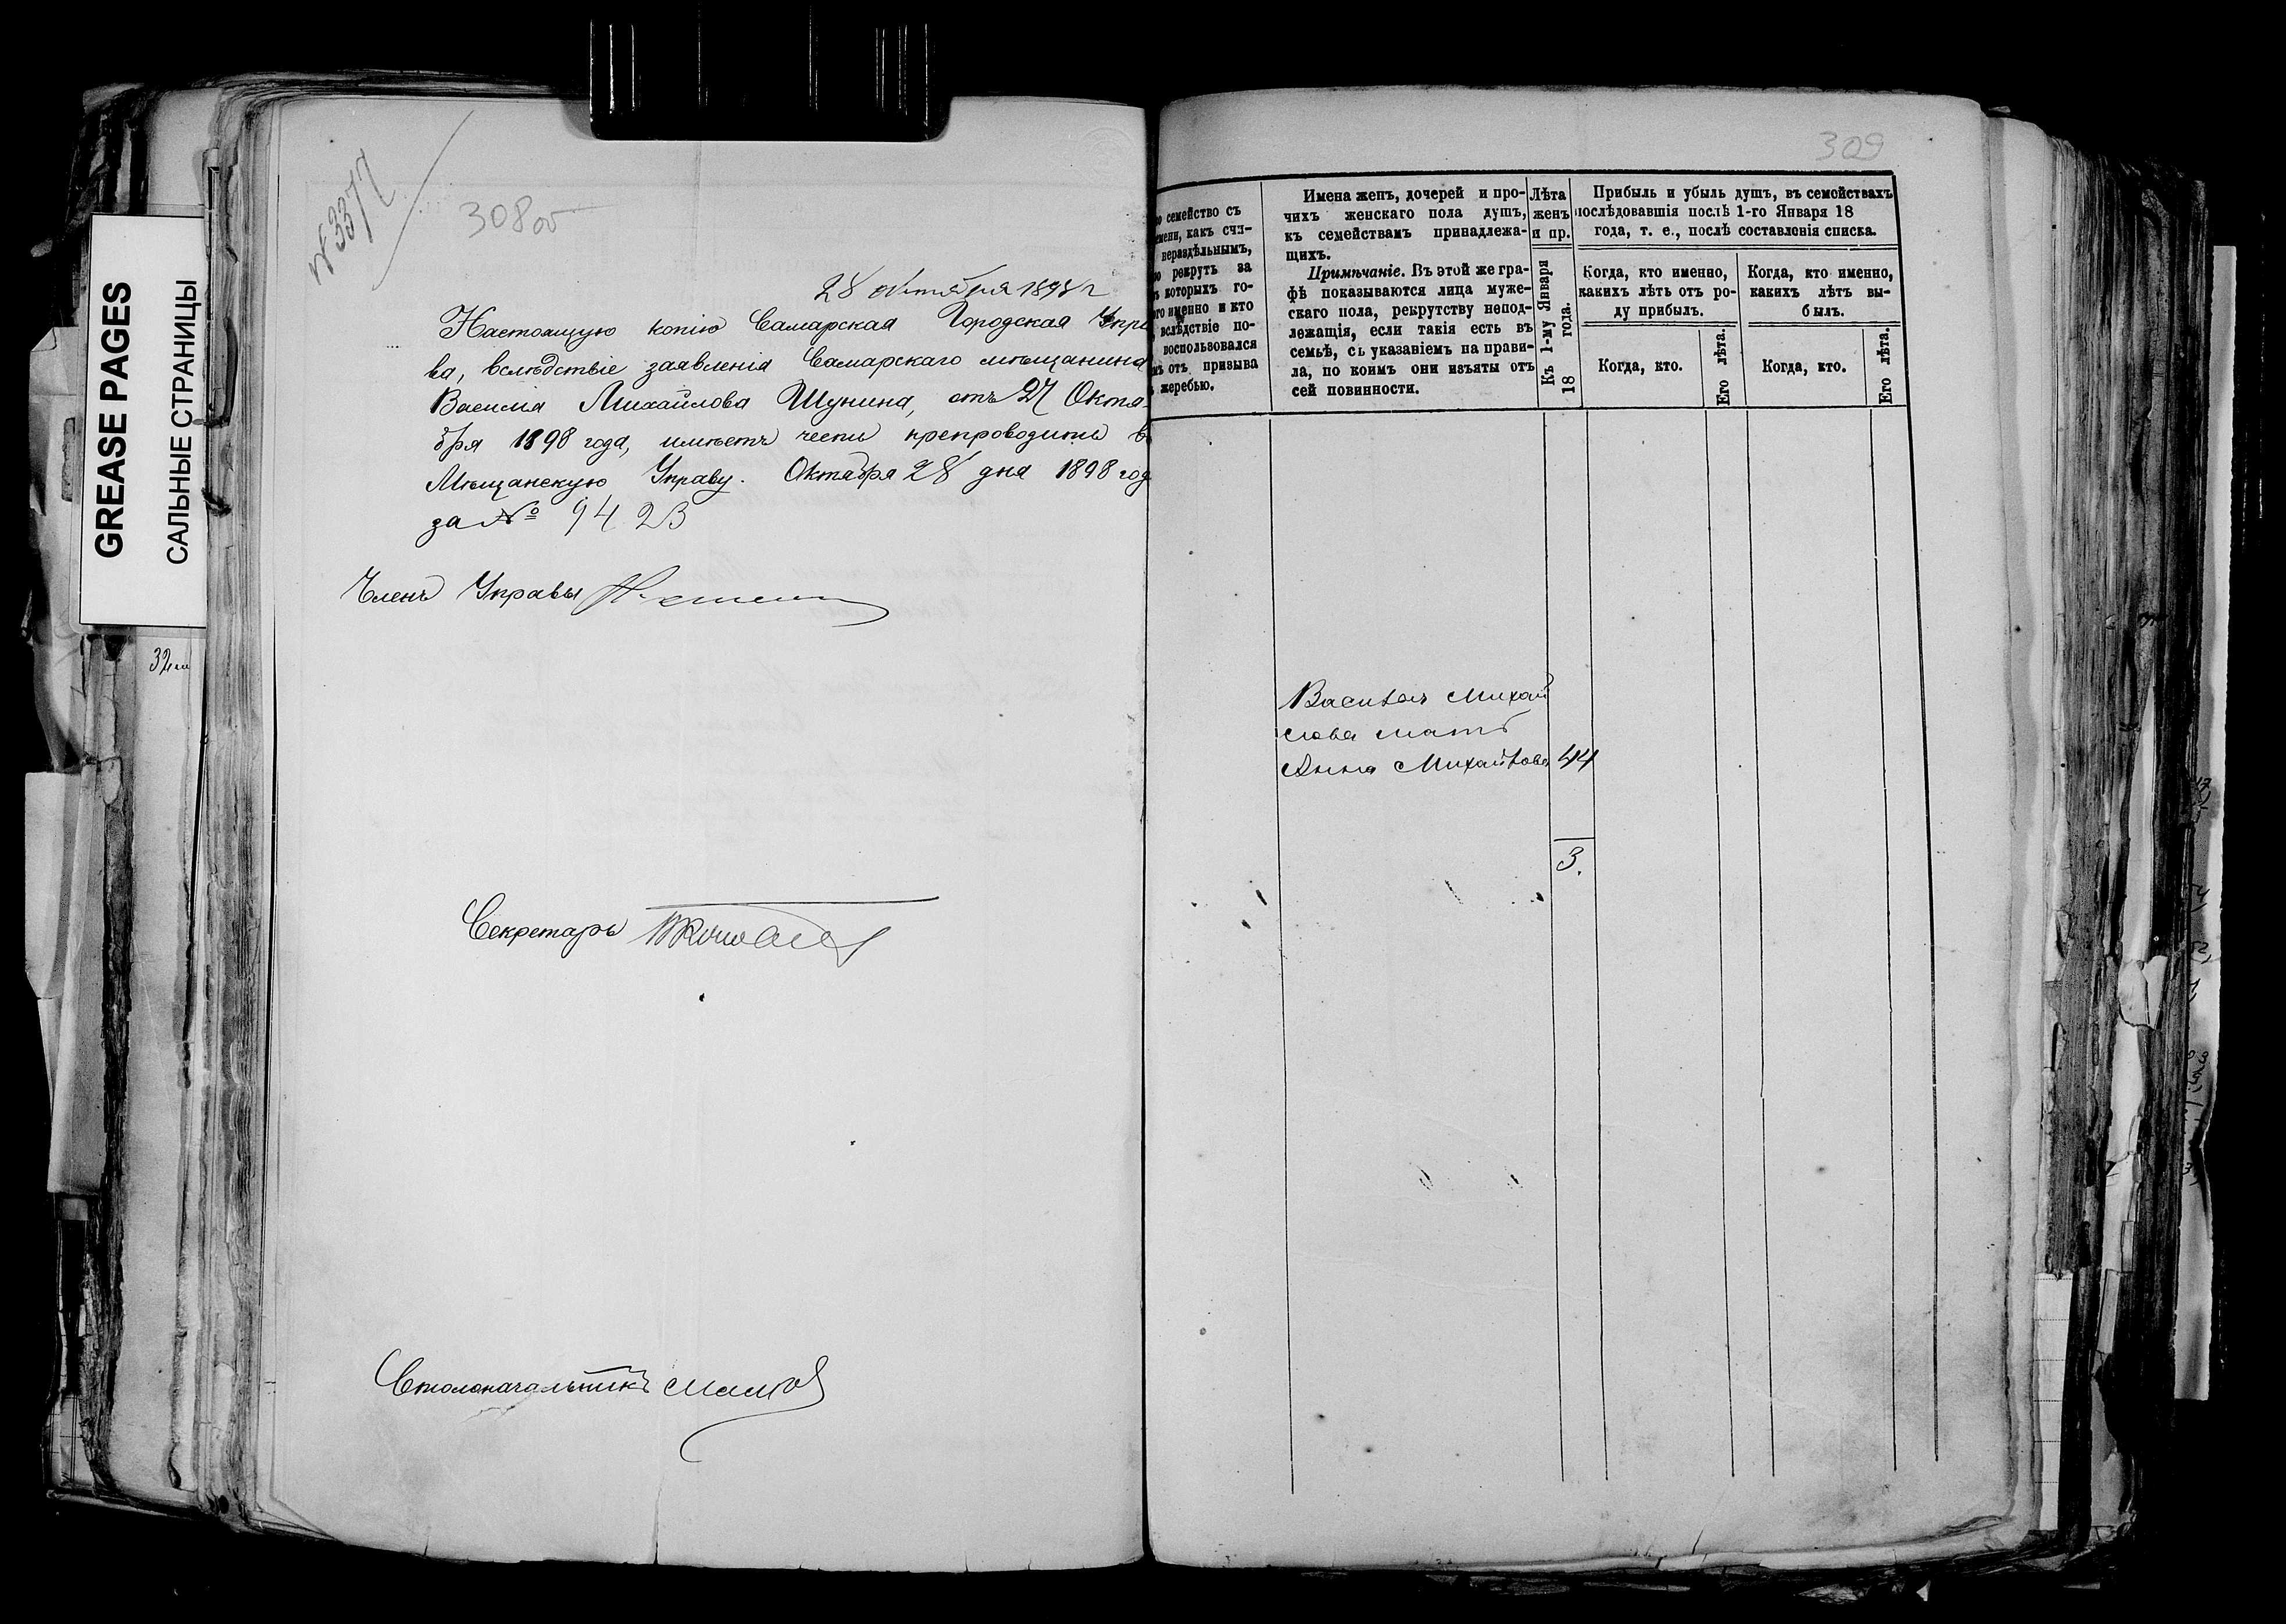 GREASE PAGES
САЛЬНЫЕ СТРАНИЦЫ
№ 3377
308об
28 октября 1898 г
Настоящую копію Самарская Городская Упра
ва, вслѣдствіе заявленія Самарскаго мѣщанина
Василія Михайлова Шунина, отъ 27 Октя-
бря 1898 года, имѣетъ честь препроводить въ
Мѣщанскую Управу. Октября 28 дня 1898 год
за № 9423
Членъ Управы
Секретарь
Столоначальникъ
32
309
семейство съ
мени, какъ счи-
нераздѣльнымъ,
рекрутъ за
которыхъ го-
именно и кто
вслѣдствіе по-
воспользовался
отъ призыва
жеребью.
Имена женъ, дочерей и про-
чихъ женскаго пола душъ,
къ семействамъ принадлежа-
щихъ.
Примѣчаніе. Въ этой же гра-
фѣ показываются лица муже-
скаго пола, рекрутству непод-
лежащія, если такія есть въ
семьѣ, съ указаніемъ на прави-
ла, по коимъ они изъяты отъ
сей повинности.
Лѣта
женъ
и пр.
Къ 1-му Января
18 года.
Прибыль и убыль душъ, въ семействахъ
послѣдовавшія послѣ 1-го Января 18
года, т. е., послѣ составленія списка.
Когда, кто именно,
какихъ лѣтъ отъ ро-
ду прибылъ.
Когда, кто.
Его лѣта.
Когда, кто именно,
какихъ лѣтъ вы-
былъ.
Когда, кто.
Его лѣта.
Михай
лова мать
Анна Михайлова 44
3.